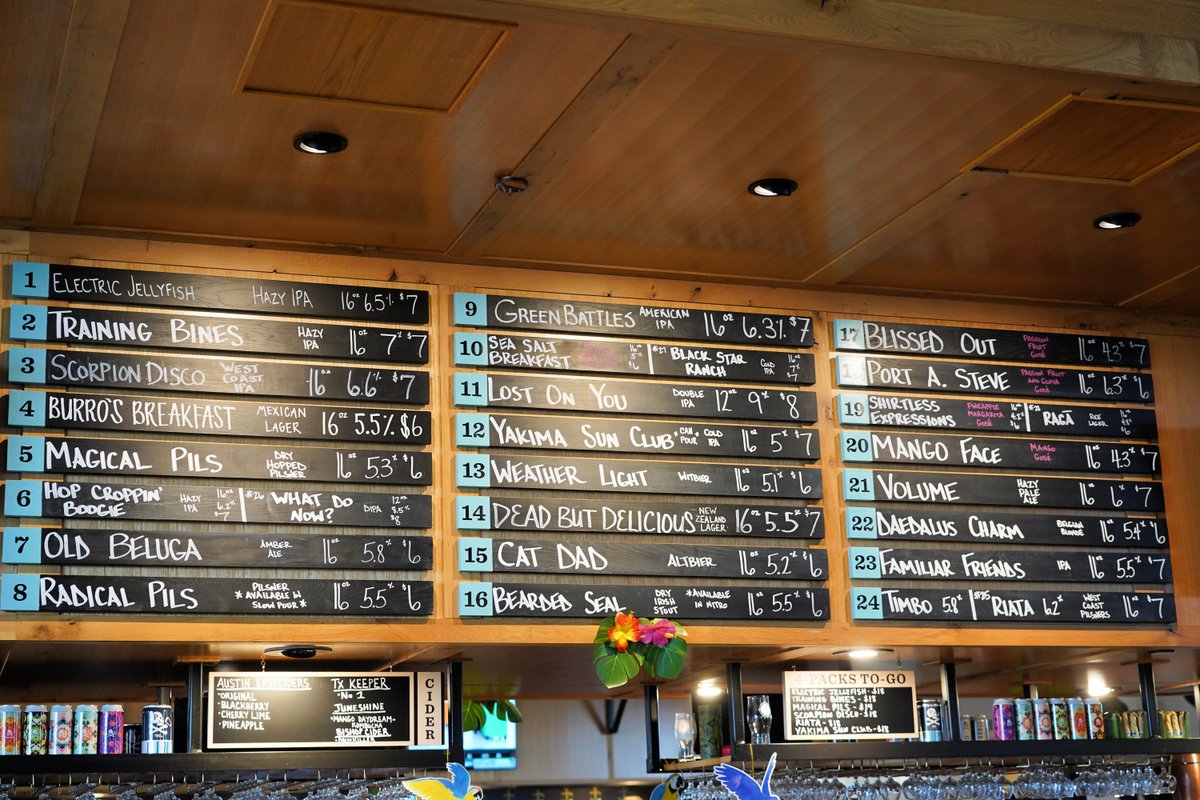 1 ELECTRIC JELLYFISH HAZY IPA 16oz 6.5% $7
2 TRAINING BINES HAZY IPA 16oz 7% $7
3 SCORPION DISCO WEST COAST IPA 16oz 6.6% $7
4 BURRO'S BREAKFAST MEXICAN LAGER 16oz 5.5% $6
5 MAGICAL PILS DRY HOPPED PILSNER 16oz 5.3% $6
6 HOP CROPPIN' BOOGIE HAZY IPA 16oz 6.2% $7 #26 WHAT DO NOW? DIPA 12oz 8.5% $8
7 OLD BELUGA AMBER ALE 16oz 5.8% $6
8 RADICAL PILS PILSNER *AVAILABLE IN SLOW POUR* 16oz 5.5% $6
9 GREEN BATTLES AMERICAN IPA 16oz 6.3% $7
10 SEA SALT BREAKFAST 16oz 5% $6 #27 BLACK STAR RANCH COLD IPA 16oz 7% $7
11 LOST ON YOU DOUBLE IPA 12oz 9% $8
12 YAKIMA SUN CLUB COLD IPA 16oz 5% $7
13 WEATHER LIGHT WITBIER 16oz 5.1% $6
14 DEAD BUT DELICIOUS NEW ZEALAND LAGER 16oz 5.5% $7
15 CAT DAD ALTBIER 16oz 5.2% $6
16 BEARDED SEAL DRY IRISH STOUT *AVAILABLE IN NITRO 16oz 5.5% $6
17 BLISSED OUT PASSION FRUIT GOSE 16oz 4.3% $7
18 PORT A. STEVE PASSION FRUIT AND GUAVA GOSE 16oz 6.3% $6
19 SHIRTLESS EXPRESSIONS PINEAPPLE MARGARITA GOSE #28 RACA RICE LAGER
20 MANGO FACE MANGO GOSE 16oz 4.3% $7
21 VOLUME HAZY PALE ALE 16oz 6% $7
22 DAEDALUS CHARM BELGIAN BLONDE 16oz 5.4% $6
23 FAMILIAR FRIENDS IPA 16oz 5.5% $7
24 TIMBO 5.8% #25 RIATA 6.2% WEST COAST PILSNERS 16oz $7
AUSTIN EASTCIDERS
•ORIGINAL
•BLACKBERRY
•CHERRY LIME
•PINEAPPLE
TX KEEPER
•No 1
JUNESHINE
•MANGO DAYDREAM-KOMBUCHA
BISHOP CIDER
CIDER
4-PACKS TO-GO
ELECTRIC JELLYFISH-$18
TRAINING BINES-$18
MAGICAL PILS-$14
SCORPION DISCO-$18
RIATA-$18
YAKIMA SUN CLUB-$18